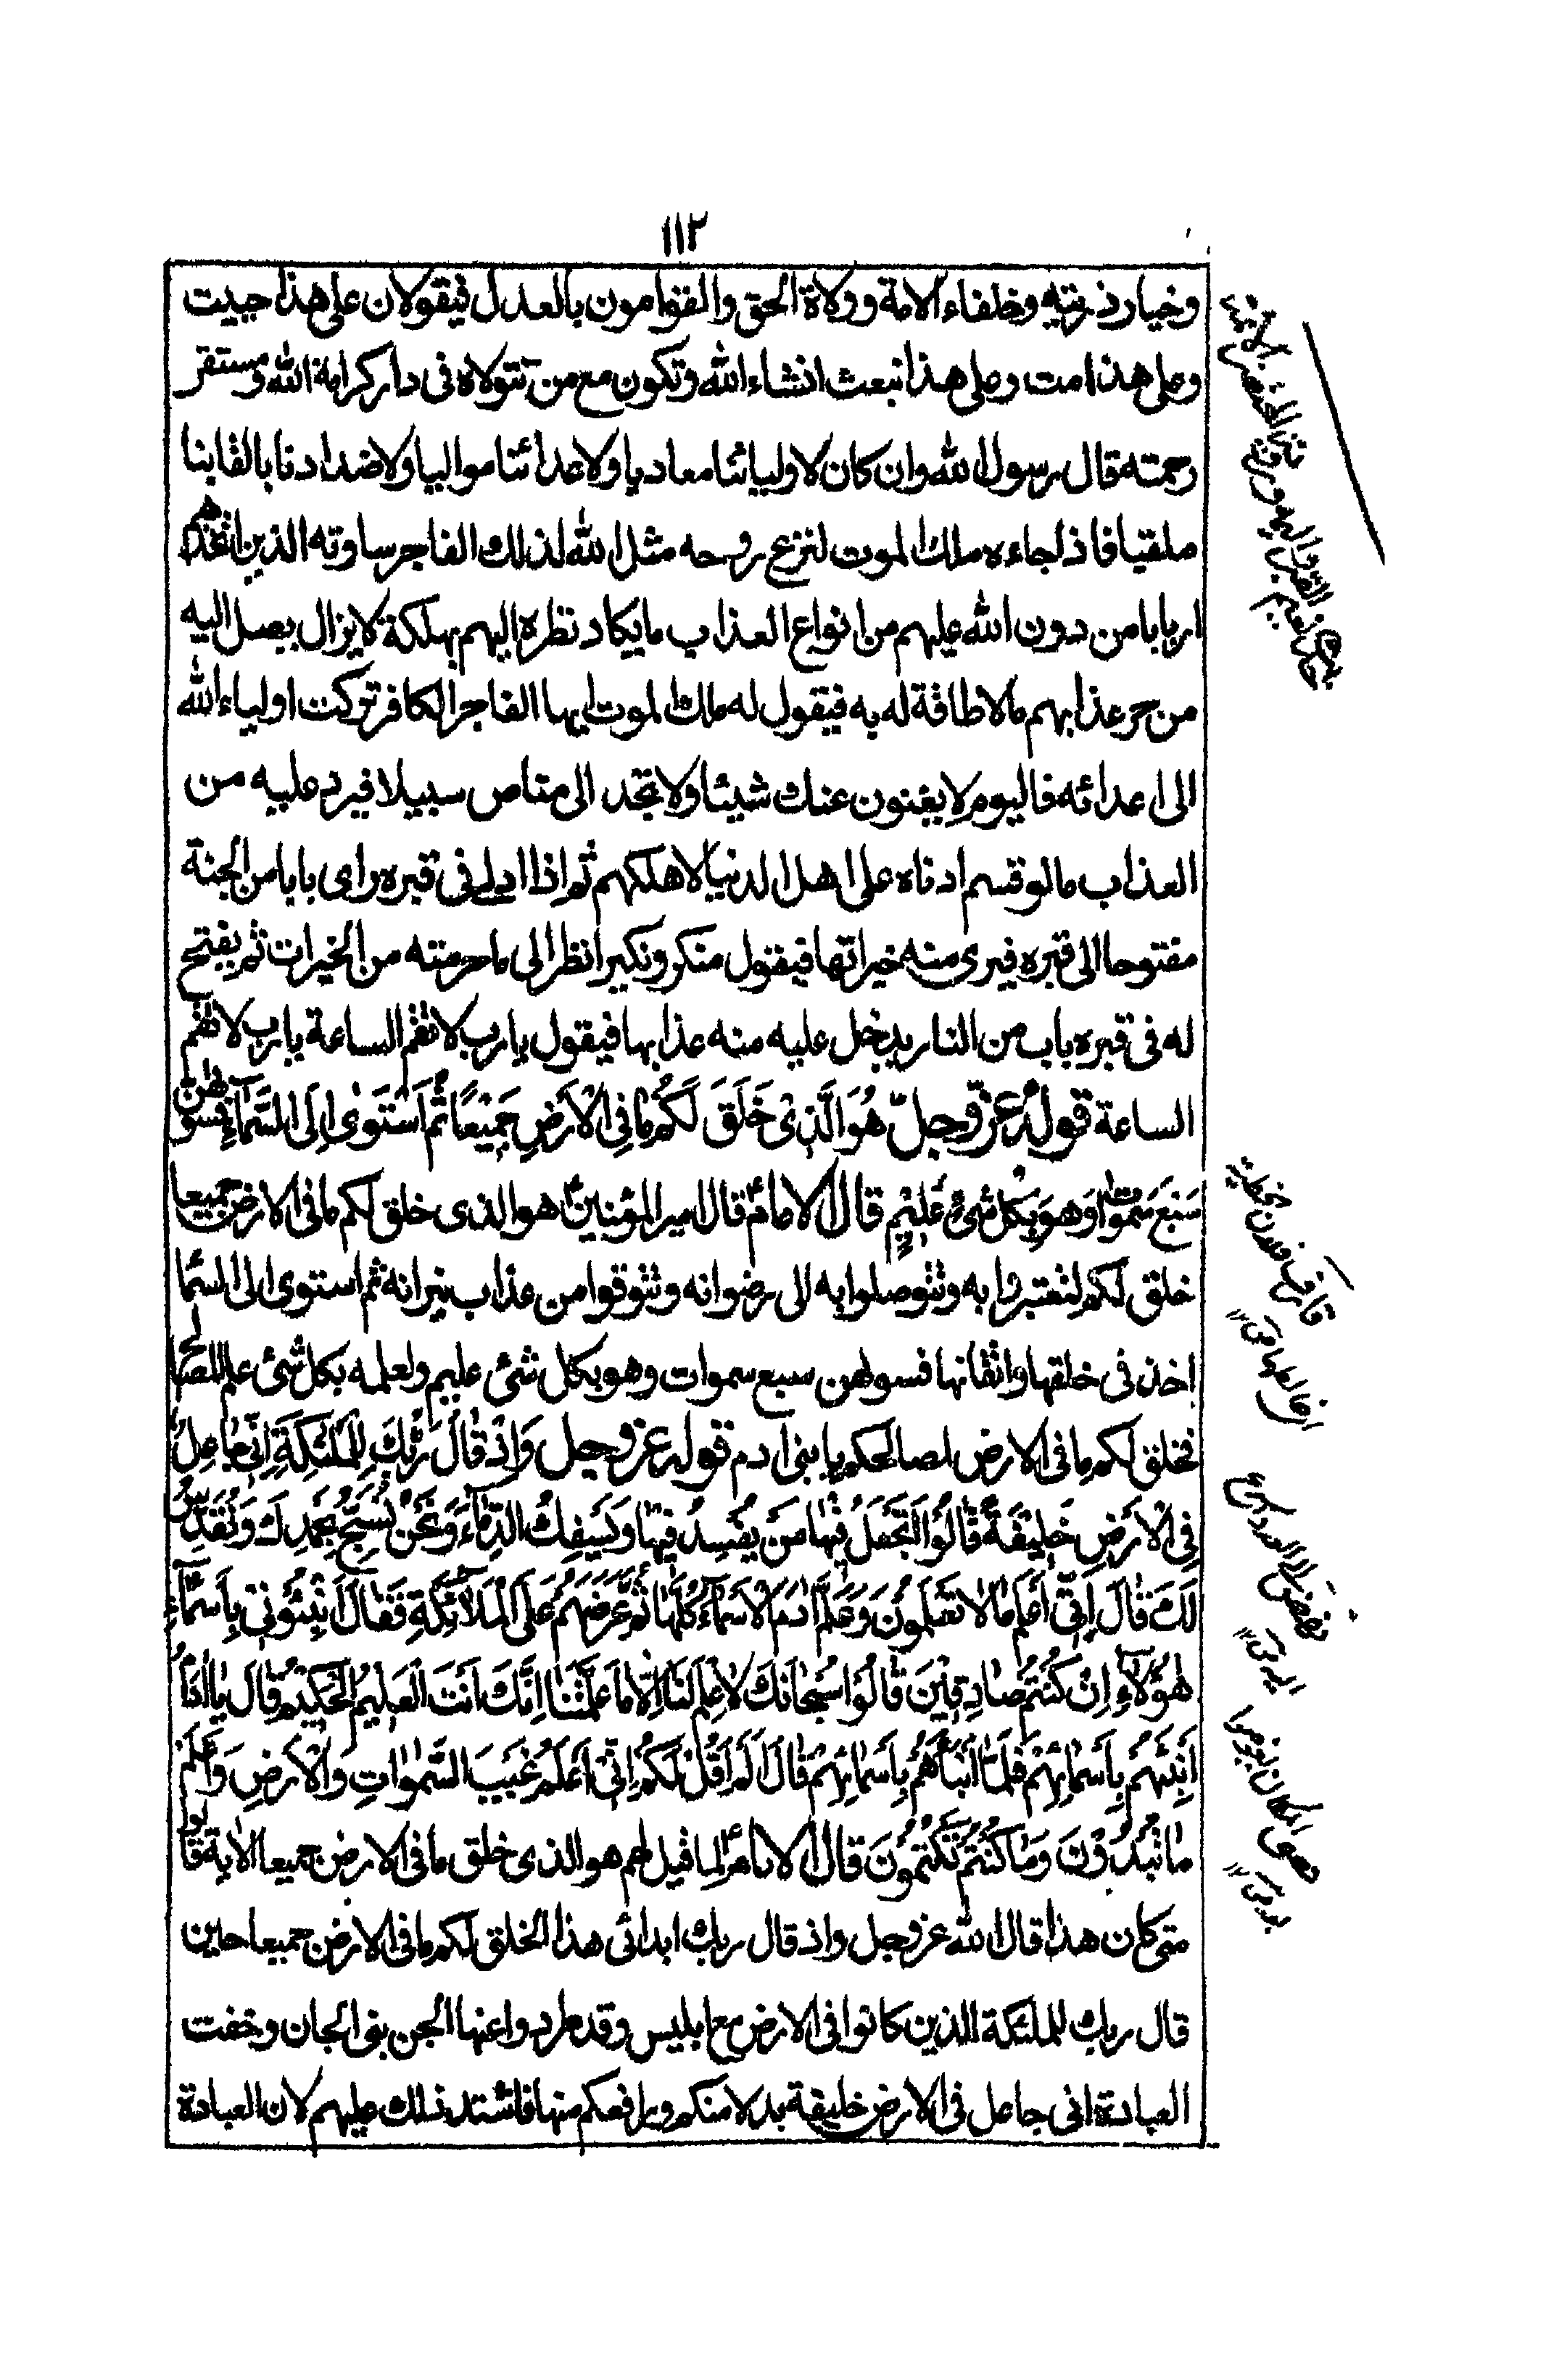 ١١٢
وخيار ذريته وخلفاء الامة وولاة الحق والقوامون بالعدل فيقولان على هذا حييت
وعلى هذا مت وعلى هذا تبعث انشاء الله وتكون مع من تتولاه فى دار كرامة الله ومستقر
رحمته قال رسول الله وان كان لاوليائنا معاديا ولاعدائنا مواليا ولاضدادنا بالقابنا
ملقبا فاذا جاءه ملك الموت لنزع روحه مثل الله لذلك الفاجر ساوته الذين اتخذهم
اربابا من دون الله عليهم من انواع العذاب ما يكاد نظره اليهم يهلكه لا يزال يصل اليه
من حر عذابهم ما لا طاقة له به فيقول له ملك الموت ايها الفاجر الكافر تركت اولياء الله
الى اعدائه فاليوم لا يغنون عنك شيئا ولا تجد الى مناص سبيلا فيرد عليه من
العذاب ما لو قسم ادناه على اهل الدنيا لاهلكهم ثم اذا ادلى فى قبره راى بابا من الجنة
مفتوحا الى قبره فيرى منه خيراتها فيقول منكر ونكير انظر الى ما حرمته من الخيرات ثم يفتح
له فى قبره باب من النار يدخل عليه منه عذابها فيقول يا رب لا تقم الساعة يا رب لا تقم
الساعة قوله عز وجل هُوَ الَّذِىْ خَلَقَ لَكُمْ مَا فِى الْاَرْضِ جَمِيْعًا ثُمَّ اسْتَوٰى اِلَى السَّمَآءِ فَسَوّٰهُنَّ
سَبْعَ سَمٰوَاتٍ وَهُوَ بِكُلِّ شَىْءٍ عَلِيْمٌ قال الامام قال امير المؤمنين هو الذى خلق لكم ما فى الارض جميعا
خلق لكم لتعتبروا به وتتوصلوا به الى رضوانه وتتوقوا من عذاب نيرانه ثم استوى الى السماء
اخذ فى خلقها واتقانها فسوهن سبع سموات وهو بكل شئ عليم ولعلمه بكل شئ علم المصالح
فخلق لكم ما فى الارض لمصالحكم يا بنى ادم قوله عز وجل وَاِذْ قَالَ رَبُّكَ لِلْمَلٰئِكَةِ اِنِّى جَاعِلٌ
فِى الْاَرْضِ خَلِيْفَةً قَالُوْا اَتَجْعَلُ فِيْهَا مَنْ يُفْسِدُ فِيْهَا وَيَسْفِكُ الدِّمَآءَ وَنَحْنُ نُسَبِّحُ بِحَمْدِكَ وَنُقَدِّسُ
لَكَ قَالَ اِنِّىْ اَعْلَمُ مَا لَا تَعْلَمُوْنَ وَعَلَّمَ اٰدَمَ الْاَسْمَآءَ كُلَّهَا ثُمَّ عَرَضَهُمْ عَلَى الْمَلَآئِكَةِ فَقَالَ اَنْبِئُوْنِىْ بِاَسْمَآءِ
هٰؤُلَآءِ اِنْ كُنْتُمْ صَادِقِيْنَ قَالُوْا سُبْحَانَكَ لَا عِلْمَ لَنَا اِلَّا مَا عَلَّمْتَنَا اِنَّكَ اَنْتَ الْعَلِيْمُ الْحَكِيْمُ قَالَ يَا اٰدَمُ
اَنْبِئْهُمْ بِاَسْمَائِهِمْ فَلَمَّا اَنْبَاَهُمْ بِاَسْمَائِهِمْ قَالَ اَلَمْ اَقُلْ لَكُمْ اِنِّىْ اَعْلَمُ غَيْبَ السَّمٰوَاتِ وَالْاَرْضِ وَاَعْلَمُ
مَا تُبْدُوْنَ وَمَا كُنْتُمْ تَكْتُمُوْنَ قال الامام لما قيل لهم هو الذى خلق ما فى الارض جميعا الاية قالوا
متى كان هذا قال الله عز وجل واذ قال ربك ابدائى هذا الخلق لكم ما فى الارض جميعا حين
قال ربك للملئكة الذين كانوا فى الارض مع ابليس وقد طردوا عنها الجن بنو الجان وخفت
العبادة انى جاعل فى الارض خليفة بدلا منكم ورافعكم منها فاشتد ذلك عليهم لان العبادة